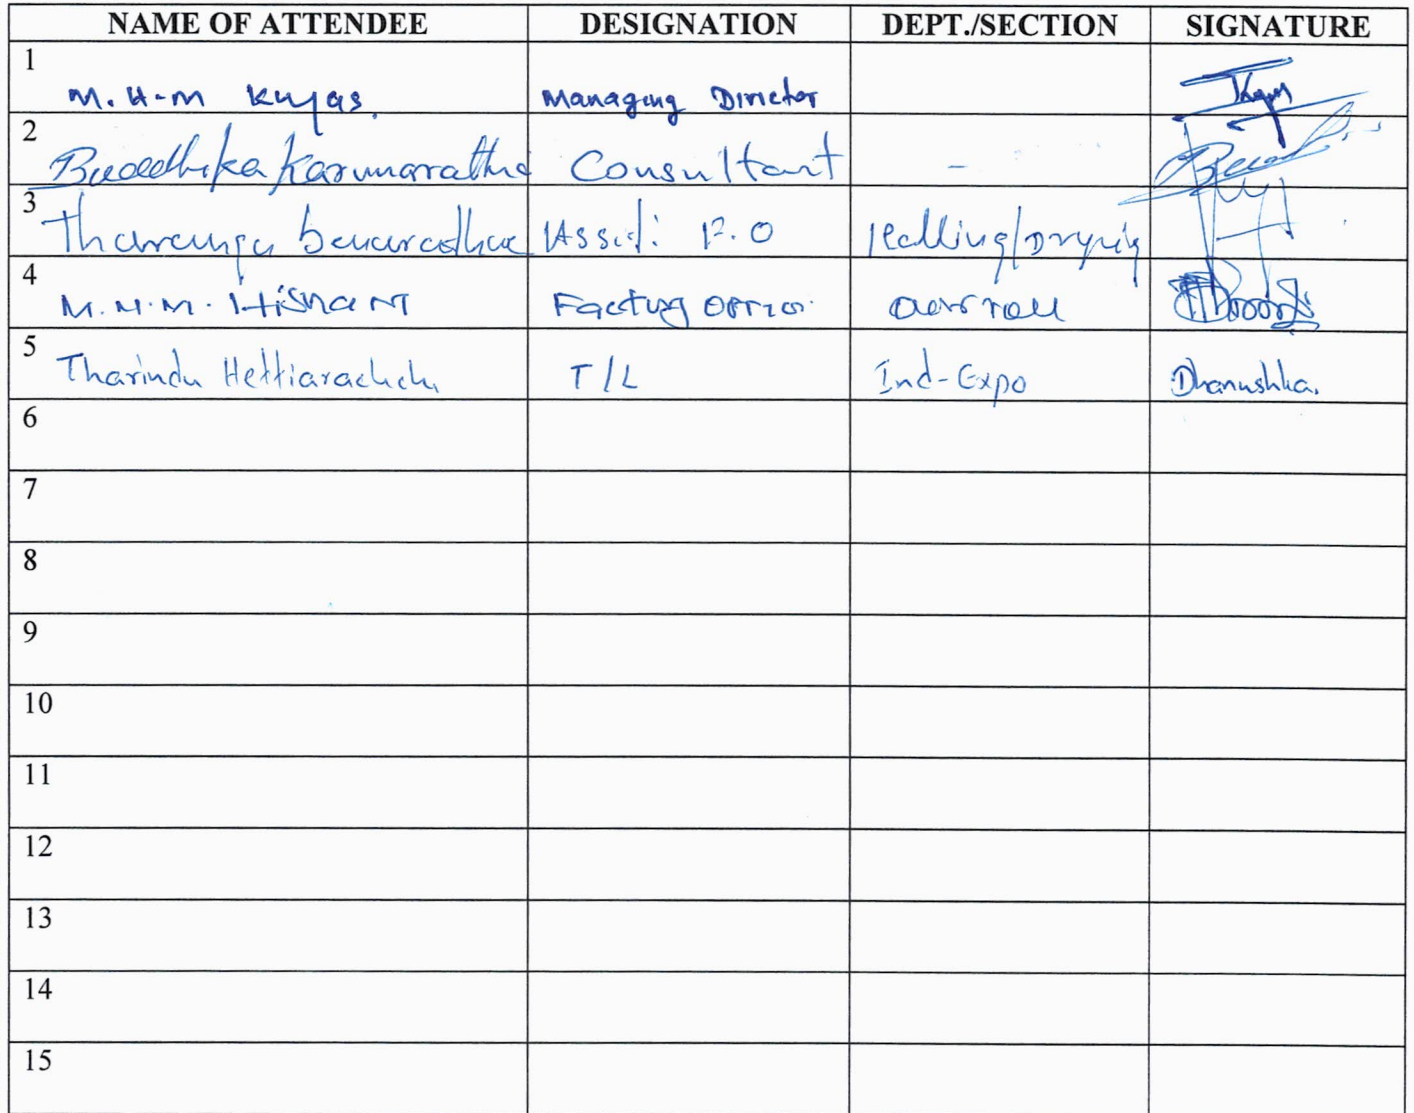 NAME OF ATTENDEE DESIGNATION DEPT./SECTION SIGNATURE
1 M.H-M Kuyas. Managing Director
2 Buddhika Karunarathne Consultant -
3 Tharanga Asst: F.O /Drying
4 M.N.M. Factory
5 Tharindu Hettiarachchi T/L Ind-Expo Dhanushka.
6
7
8
9
10
11
12
13
14
15